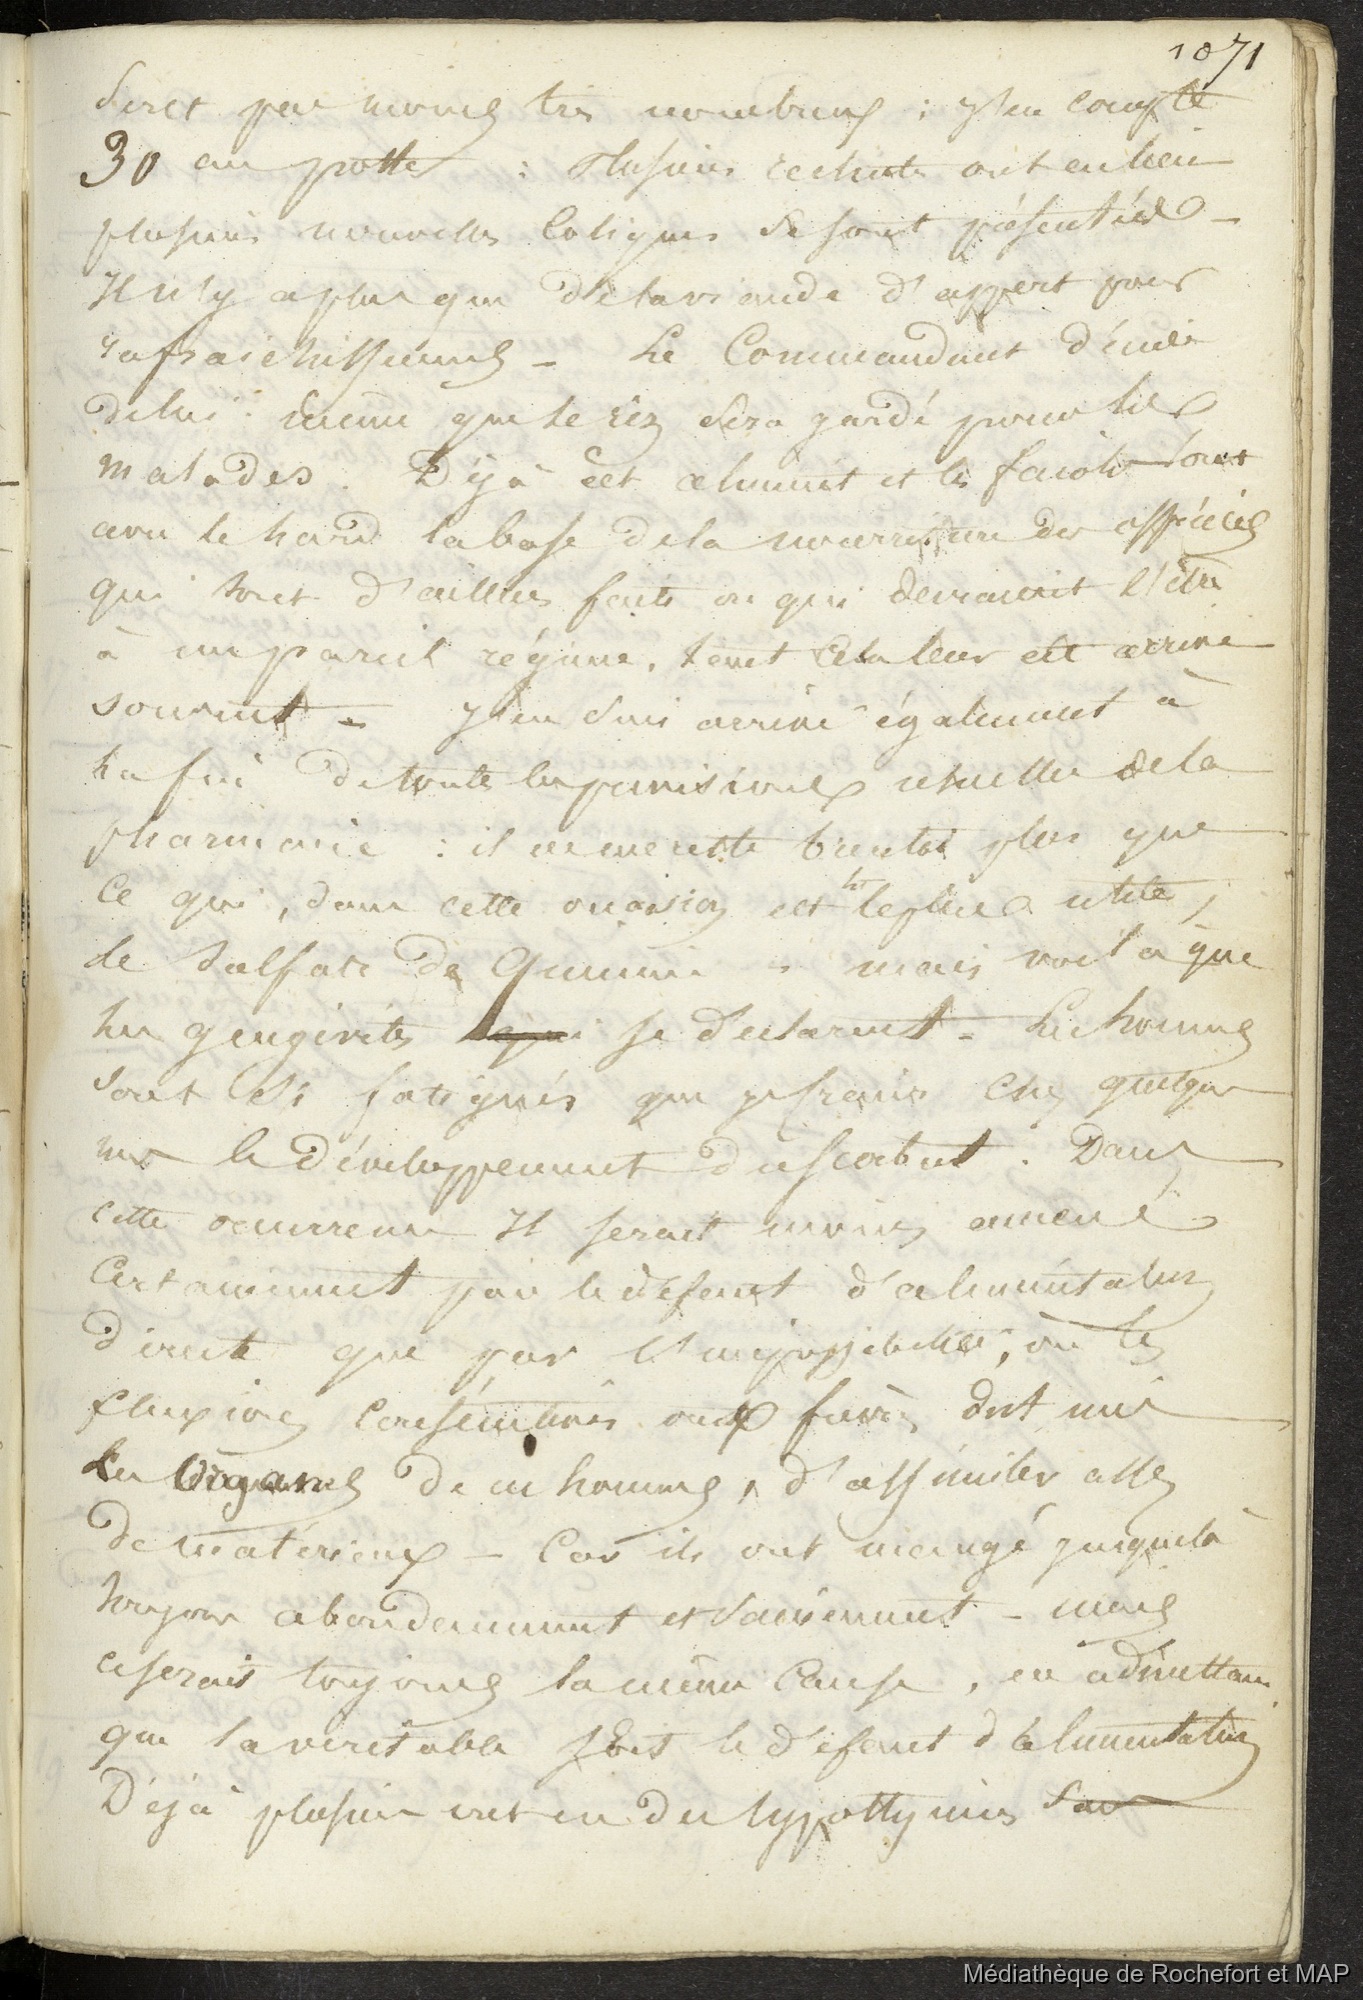 1071
sont pas moins très nombreux : j'en compte
30 au poste : Plusieurs rechutes ont eu lieu
plusieurs nouvelles Coliques se sont présentées -
Il n'y a plus que de la viande d'appert pour
rafraichissement - Le Commandant décide
de lui même que le riz sera gardé pour les
malades. Déjà cet aliment et les faiols sont
avec le hard la base de la nourriture des officiers
qui sont d'ailleurs faits ou qui devraient l'être
à un pareil régime, tant cela leur est arrivé
souvent - J'en suis arrivé également à
la fin de toutes les provisions usuelles de la
pharmacie : il ne me reste bientôt plus que
ce qui, dans cette occasion est le plus utile,
le sulfate de Quinine - mais voilà que
les gengivites qui se déclarent - Les hommes
sont si fatigués que je crains chez quelques
uns le développement du scorbut. Dans
cette occurrence Il serait moins amené
Certainement par le défaut d'alimentation
directe que par l'impossibilité, où les
fluxions consécutives aux fièvres ont mis
les organes de ces hommes, d'assimiler assez
de matériaux - Car ils ont mangé jusque là
toujours abondamment et sainement - mais
ce serait toujours la même cause, en admettant
que la véritable soit le défaut d'alimentation
Déjà plusieurs ont eu des lypothymies sans